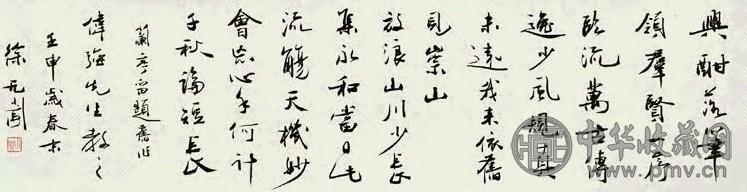 興酣落筆
領群賢序
臨流萬古傳
逸少風規真
未遠我來依舊
見崇山
放浪山川少長
集永和當日此
流觴天機妙
會忘心手何計
千秋論短長
蘭亭留題舊作
偉先生教之
壬申歲春末
徐无聞
中华收藏网
www.pmv.cn